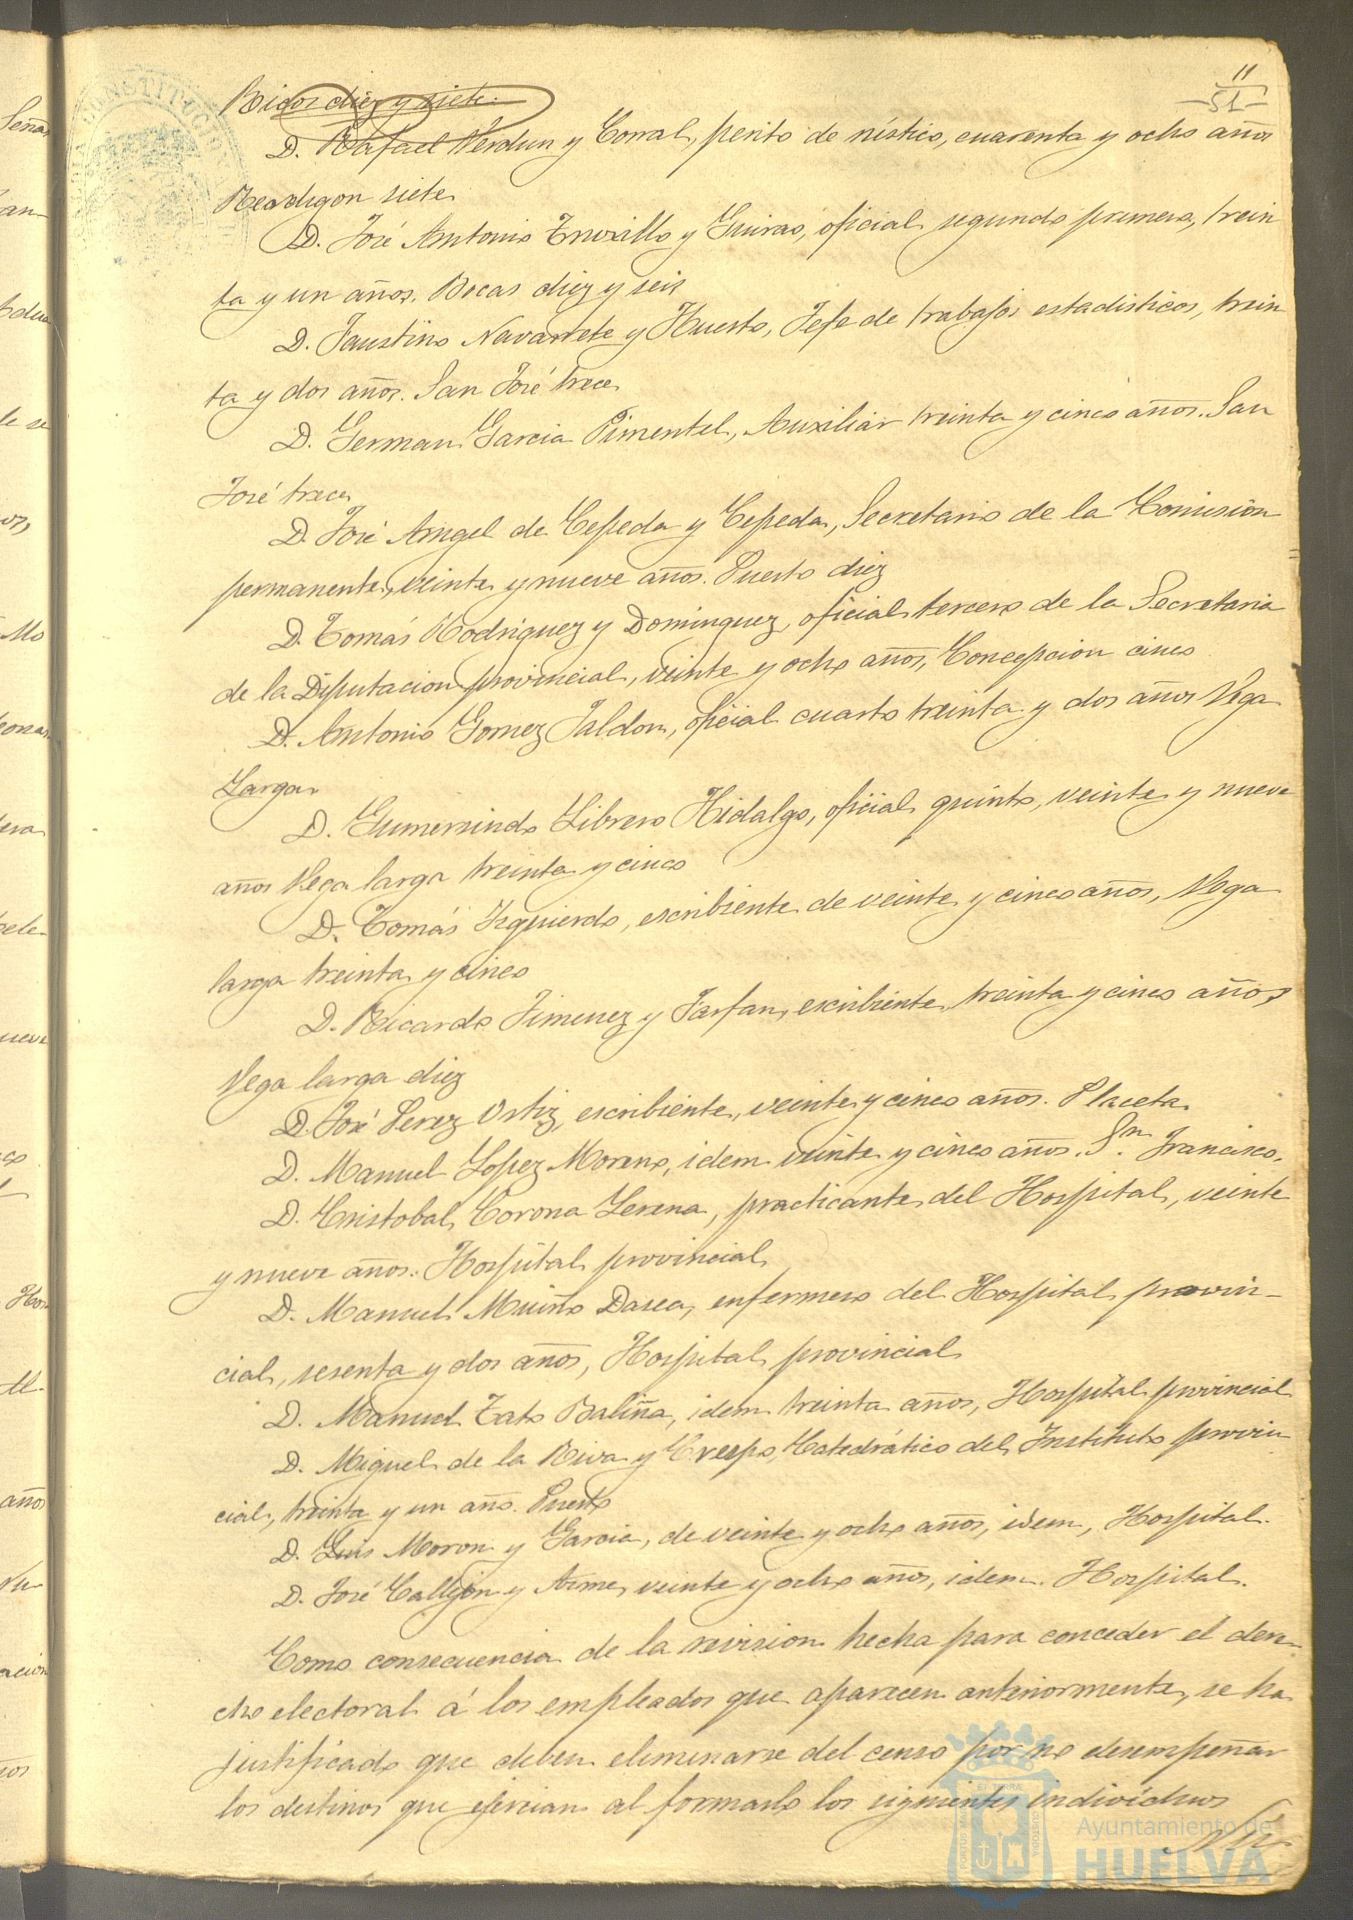 11
-51-
Ricos diez y siete.
D. Rafael Verdun y Corral, perito de rústico, cuarenta y ocho años
siete
D. José Antonio Truxillo y Guirao, oficial segundo primero, trein
ta y un años. Bocas diez y seis
D. Faustino Navarrete y Huerto, Jefe de trabajos estadisticos, trein
ta y dos años. San José trece
D. German Garcia Pimentel, Auxiliar treinta y cinco años. San
José trece
D. José Amgel de Cepeda y Cepeda, Secretario de la Comision
permanente, veinte y nueve años. Puerto diez
D. Tomás Rodriguez y Dominguez, oficial tercero de la Secretaria
de la Diputacion provincial, veinte y ocho años, Concepcion cinco
D. Antonio Gomez Jaldon, oficial cuarto treinta y dos años Vega
Larga
D. Gumersindo Librero Hidalgo, oficial quinto, veinte y nueve
años Vega larga treinta y cinco
D. Tomás Izquierdo, escribiente de veinte y cinco años, Vega
larga treinta y cinco
D. Ricardo Jimenez y Farfan, escribiente, treinta y cinco años,
Vega larga diez
D. José Perez Ortiz, escribiente, veinte y cinco años. Placeta
D. Manuel Lopez Moreno, idem veinte y cinco años. Sn. Francisco,
D. Cristobal Corona Lerena, practicante del Hospital, veinte
y nueve años. Hospital provincial
D. Manuel Muiño Dasea, enfermero del Hospital provin-
cial, sesenta y dos años, Hospital provincial
D. Manuel Tato Baliña, idem treinta años, Hospital provincial
D. Miguel de la Riva y Crespo, Catedrático del Instituto provin
cial, treinta y un año. Puerto
D. Luis Moron y Garcia, de veinte y ocho años, idem, Hospital.
D. José Callejon y veinte y ocho años, idem. Hospital.
Como consecuencia de la revision hecha para conceder el dere-
cho electoral á los empleados que aparecen anteriormente, se ha
justificado que deben eliminarse del censo por no desempeñar
los destinos que ejercian al formarlo los siguientes individuos
Ayuntamiento de
HUELVA